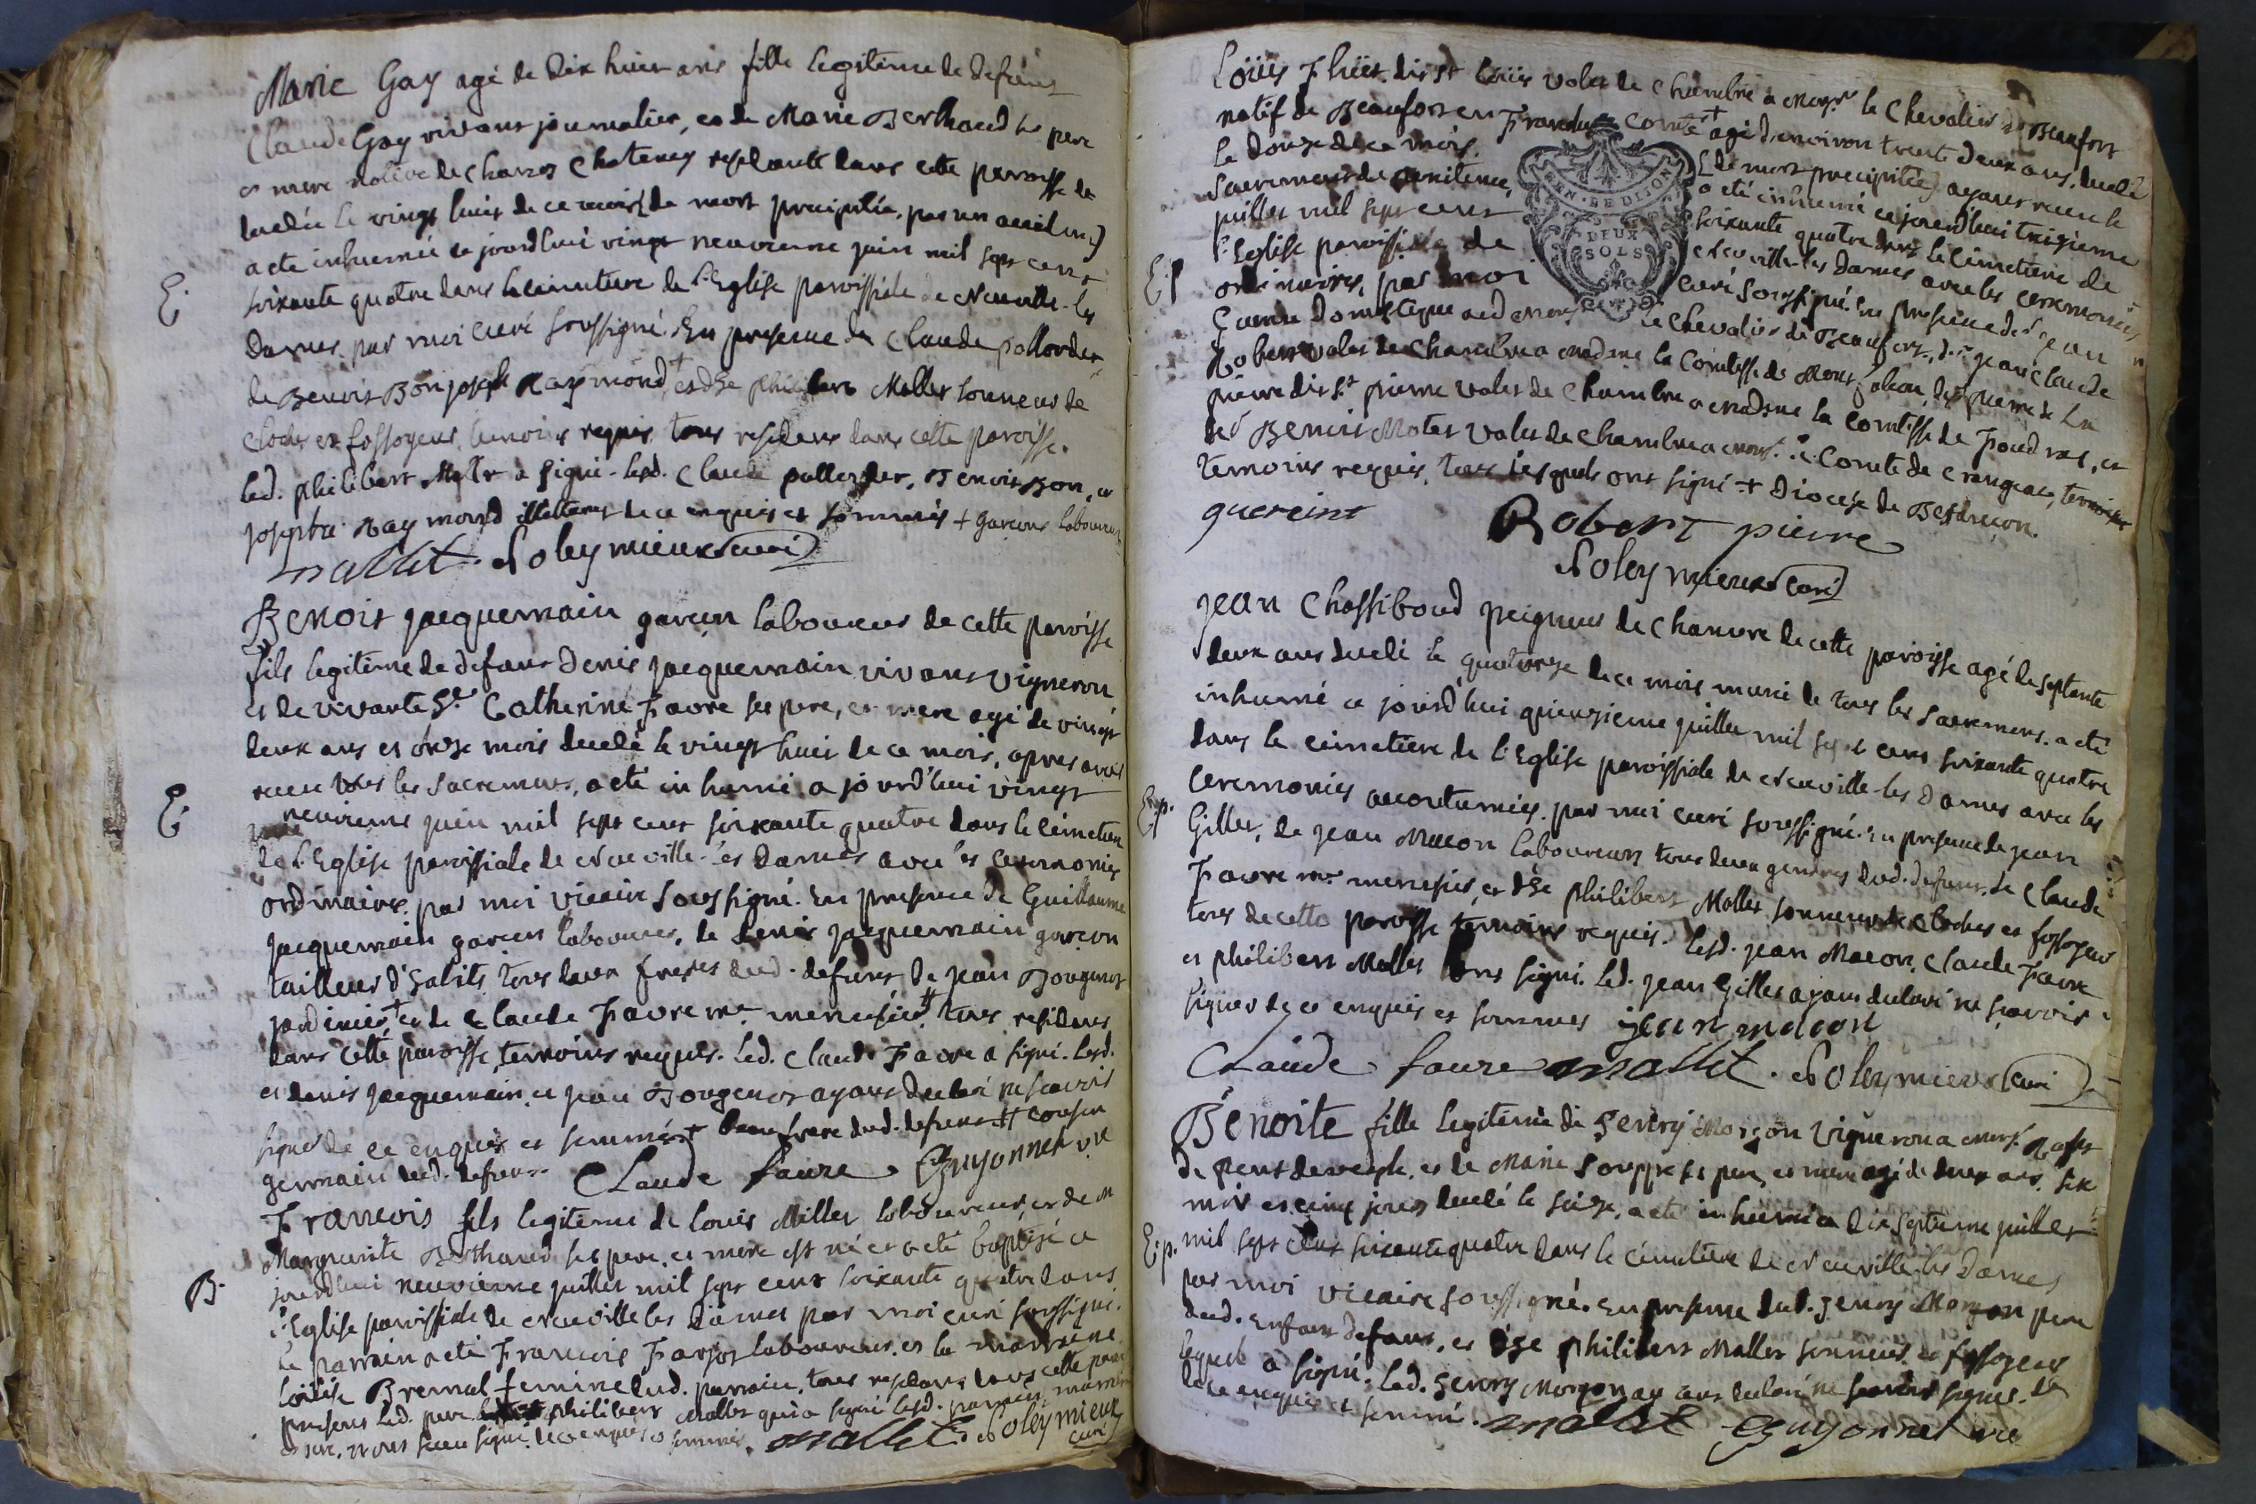 Marie Gay agé de dix huit ans fille legitime de defunt
Claude Gay vivant journalier, et de Marie Berthaud ses pere
et mere native de Chatenay residante dans cette paroisse de
le vingt huit de ce mois (de mort precipitée, par un accident)
a eté inhumée ce jourd'hui vingt neuvieme juin mil sept cent
E.
soixante quatre dans le cimetiere de l'Eglise paroissiale de Neuville-les
Dames, par moi curé soussigné. En presence de Claude pallordet
de Benoit Bon, joseph Raymond + et de philibert Mallet sonneur de
cloches et fossoyeur, temoins requis, tous residens dans cette paroisse.
led. philibert Mallet a signé. lesd. Claude pallordet, Benoit Bon, et
joseph Raymond illetterés de ce enquis et sommés + garcons laboureurs
mallet. Soleymieux curé
Benoit jacquemain garçon laboureur de cette paroisse
fils legitime de defunt Denis jacquemain vivant vigneron
et de vivante Catherine Favre ses pere, et mere agé de vingt
deux ans et onze mois decedé le vingt huit de ce mois, apres avoir
receu tous les sacremens, a eté inhumé ce jourd'hui vingt
E.
neuvieme juin mil sept cent soixante quatre dans le cimetiere
de l'Eglise paroissiale de Neuville-les Dames avec les ceremonies
ordinaires, par moi vicaire soussigné. En presence de Guillaume
jacquemain garçon laboureur, de Denis jacquemain garçon
tailleur d'habits tous deux freres dud. defunt, de jean Bougenot
jardinier + et de Claude Favre me menusier # tous residens
dans cette paroisse, temoins requis. Led. Claude Favre a signé. Lesd.
et denis jacquemain, et jean Bougenot ayant declaré ne sçavoir
signer de ce enquis et sommés + beau frere dud. defunt # cousin
germain dud. defunt. Claude faure Guyonnet vre
Francois fils legitime de Louis Millet laboureur, et de
Marguerite Berthaud ses pere, et mere est né et a eté baptisé ce
B.
jourd'hui neuvieme juillet mil sept cent soixante quatre dans
l'Eglise paroissiale de Neuville les Dames par moi curé soussigné.
le parrain a eté Francois Farjot laboureur, et la marraine
Loüise Bremal femme dud. parrain, tous residans dans cette paroisse
presens led. pere philibert Mallet qui a signé lesd. parrain, marraine
et pere, n'ont sceu signé de ce enquis et sommés. mallet. Soleymieux
curé
Loüis Flüet dit St Loüis valet de chambre a Monsr le Chevalier de Beaufort
natif de Beaufort en Franche comté + agé d'environ trente deux ans, decedé
le douze de ce mois (de mort precipitée) ayant receu le
sacrement de penitence, a eté inhumé ce jourd'hui treizieme
juillet mil sept cent soixante quatre dans le cimetiere de
l'Eglise paroissiale de Neuville-les Dames avec les ceremonies
GEN. DE DIJON
DEUX
SOLS
E.p.
ordinaires, par moi curé soussigné. En presence de sr jean
domestique aud. Monsr le Chevalier de Beaufort, de sr jean Claude
Robert valet de chambre a madame la Comtesse de Mont jalion, de pierre
pierre dit St pierre valet de chambre a madame la Comtesse de Foudras, et
de sr Benoit Motet valet de chambre a monsr le Comte de Crangeac, temoins
temoins requis, tous lesquels ont signé + Diocèse de Besançon.
quereint Robert pierre
Soleymieux curé
Jean Chassiboud peigneur de chanvre de cette paroisse agé de septante
deux ans decedé le quatorze de ce mois muni de tous les sacremens, a eté
inhumé ce jourd'hui quinzieme juillet mil sept cent soixante quatre
dans le cimetiere de l'Eglise paroissiale de Neuville-les Dames avec les
ceremonies accoutumées, par moi curé soussigné. En presence de jean
E.p.
Gillet, de jean Macon laboureurs tous deux gendres dud. defunt, de Claude
Favre me menusier, et de philibert Mallet, sonneur de cloches et fossoyeur
tous de cette paroisse temoins requis. Lesd. jean Macon, Claude Favre
et philibert Mallet ont signé. Led. jean Gillet ayant declaré ne sçavoir
signer de ce enquis et sommés jean macon
Claude faure mallet. Soleymieux curé
Benoite fille legitime de henry Morgon vigneron a
et de Marie Souppe ses pere, et mere agé de deux ans, six
mois et cinq jours decedé le seize, a eté inhumée ce dix septieme juillet
E.p.
mil sept cent soixante quatre dans le cimetiere de Neuville les Dames
par moi vicaire soussigné. En presence dud. henry Morgon pere
dud. enfant defunt, et de philibert Mallet sonneur, et fossoyeur
lequel a signé. Led. henry Morgon ayant declaré ne sçavoir signer. de
de ce enquis et sommé. mallet Guyonnet vre